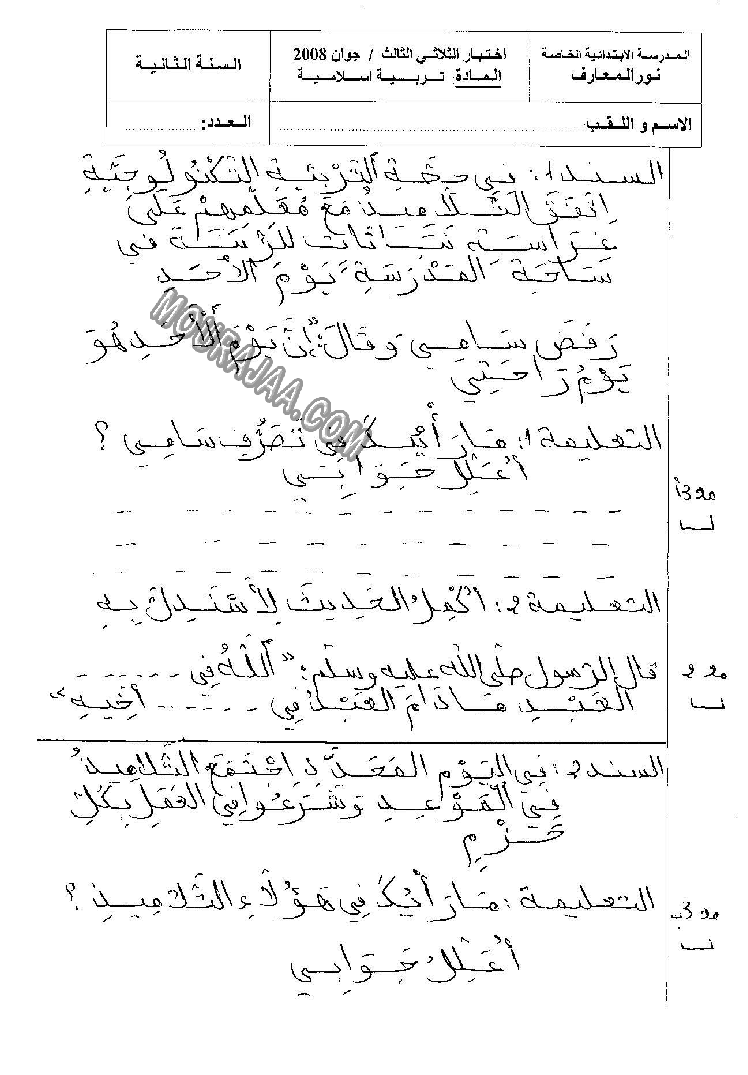 المدرسة الابتدائية الخاصة
نور المعارف
اختبار الثلاثي الثالث / جوان 2008
المادة: تربية اسلامية
السنة الثانية
الاسم و اللقب:
العدد:
السند 1: في حصّة التّربية التّكنولوجيّة
اتّفق التّلاميذ مع معلّمهم على
غراسة نباتات للزّينة في
ساحة المدرسة يوم الأحد
رفض سامي وقال: "إنّ يوم الأحد هو
يوم راحتي
التعليمة 1: ما رأيك في تصرّف سامي ؟
أعلّل جوابي
مع 3أ
التعليمة 2: أكمل الحديث لأستدلّ به
قال الرّسول صلّى الله عليه وسلّم: "اللّه في ......
العبد ما دام العبد في ...... أخيه"
مع 2
السند 2: في اليوم المحدّد اجتمع التّلاميذ
في الموعد وشرعوا في العمل بكلّ
حزم
التعليمة: ما رأيك في هؤلاء التّلاميذ ؟
أعلّل جوابي
مع 3ب
MOURAJAA.COM